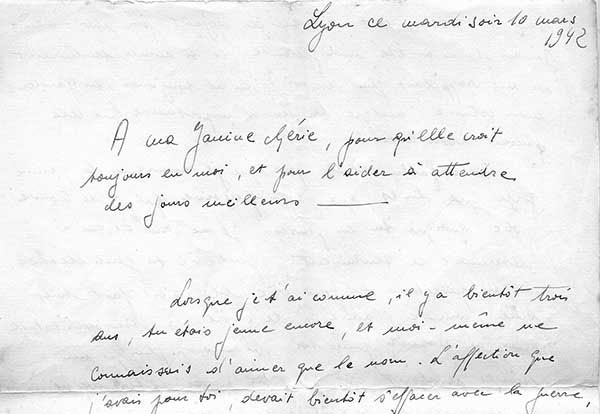 Lyon ce mardi soir 10 mars
1942
A ma Janine chérie, pour qu'elle croit
toujours en moi, et pour l'aider à attendre
des jours meilleurs ———
Lorsque je t'ai connue, il y a bientôt trois
ans, tu étais jeune encore, et moi-même ne
connaissais d'aimer que le nom. L'affection que
j'avais pour toi, devait bientôt s'effacer avec la guerre,